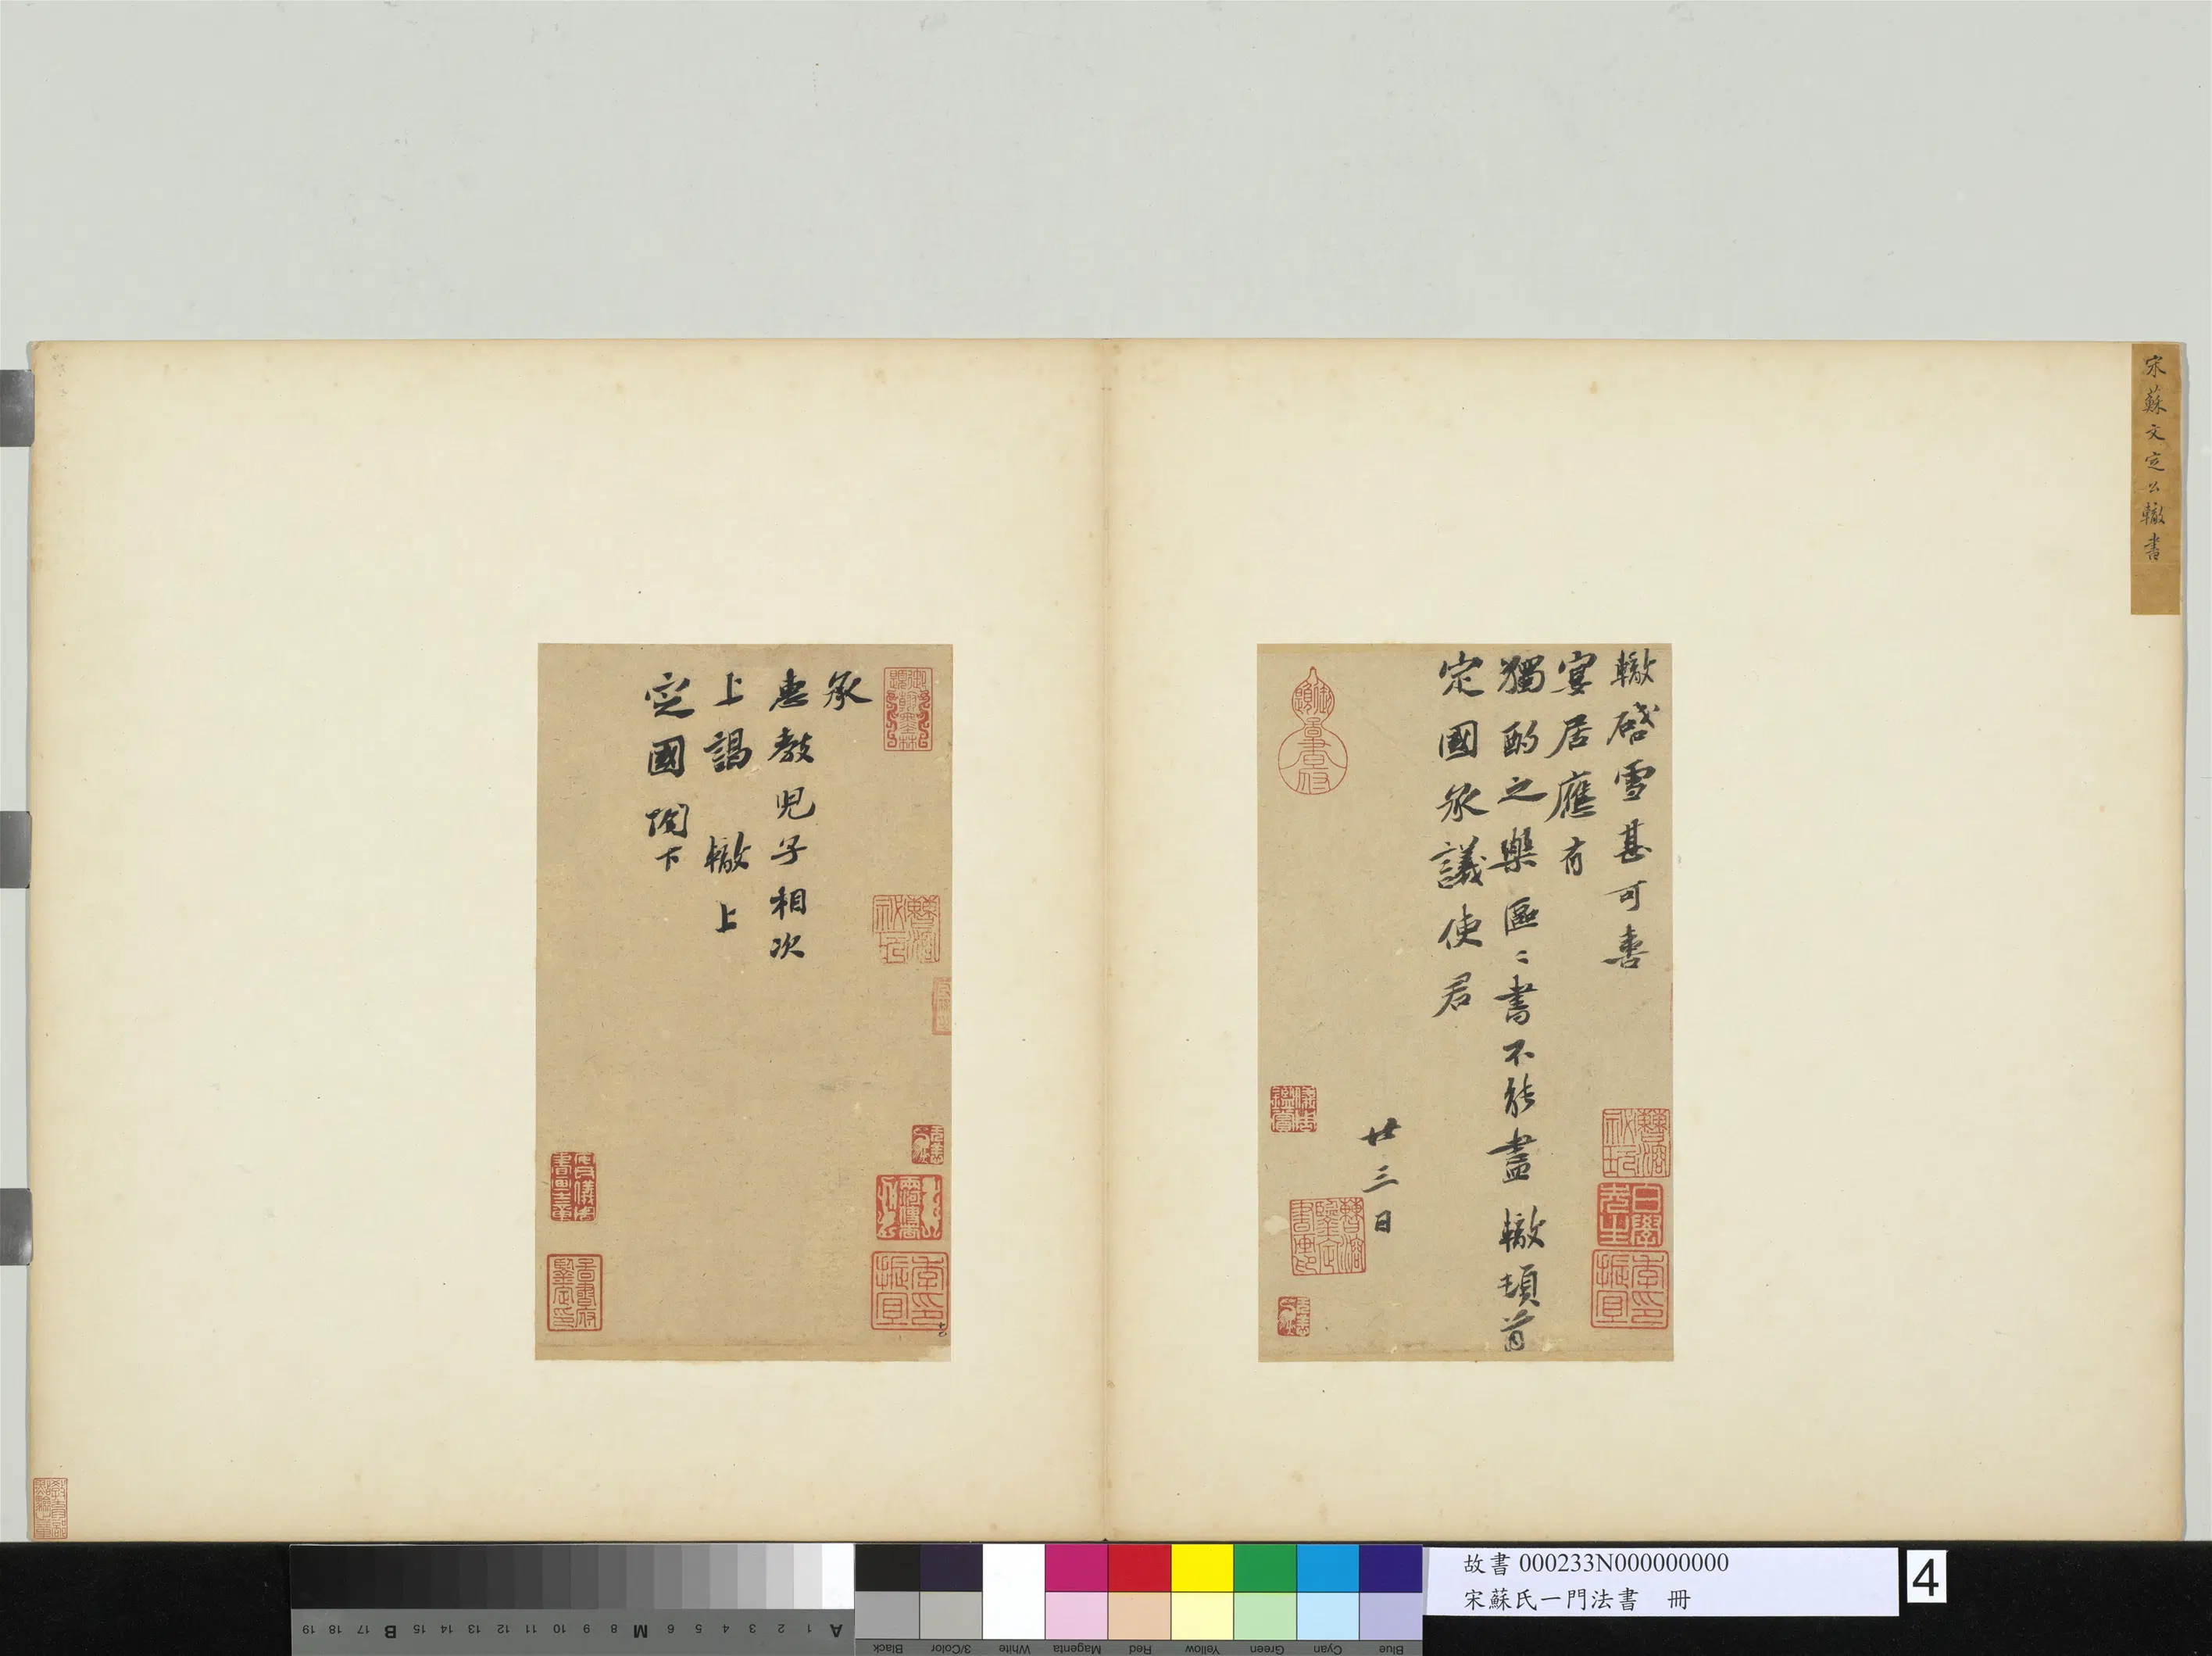 宋蘇文定公轍書
轍啓雪甚可喜
宴居應有
獨酌之樂區〻書不能盡轍頓首
定國承議使君
廿三日
承
惠教兒子相次
上謁 轍上
定國閣下
白學先生
李振宜印
晉書府鑒定印
御題
晉書府
故書 000233N000000000
宋蘇氏一門法書 冊
4
A 1 2 3 4 5 6 7 8 M 9 10 11 12 13 14 15 B 17 18 19
Blue Cyan Green Yellow Red Magenta White 3/Color Black